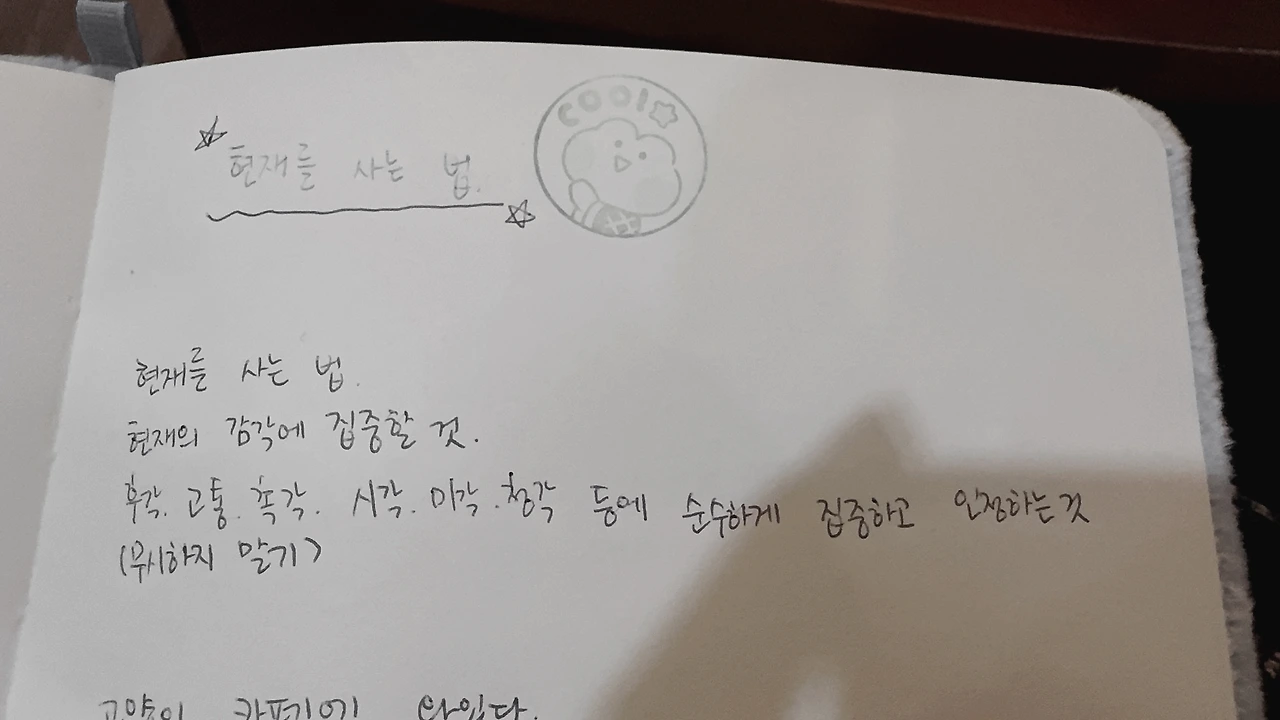 현재를 사는 법.
COOL
현재를 사는 법.
현재의 감각에 집중할 것.
후각. 고통. 촉각. 시각. 미각. 청각 등에 순수하게 집중하고 인정하는것
(무시하지 말기)
고양이 카페에 와있다.